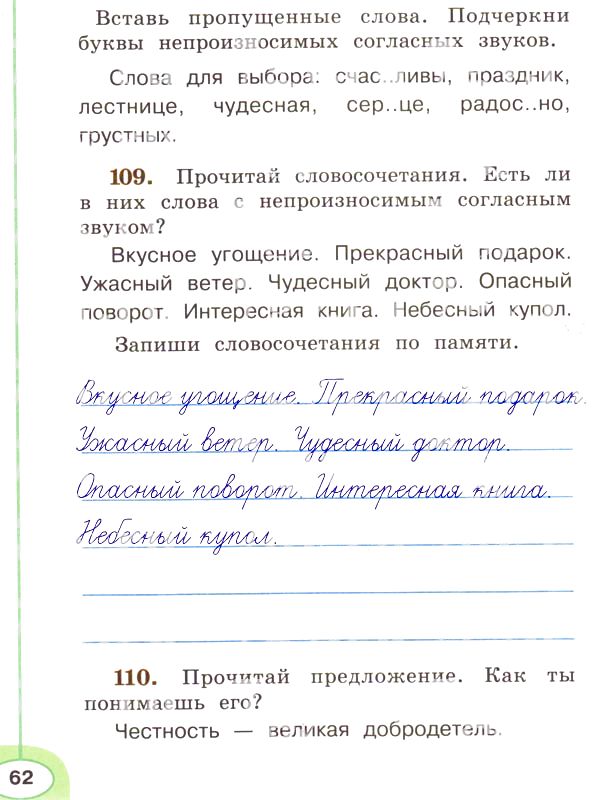 Вставь пропущенные слова. Подчеркни
буквы непроизносимых согласных звуков.
Слова для выбора: счас..ливы, праздник,
лестнице, чудесная, сер..це, радос..но,
грустных.
109. Прочитай словосочетания. Есть ли
в них слова с непроизносимым согласным
звуком?
Вкусное угощение. Прекрасный подарок.
Ужасный ветер. Чудесный доктор. Опасный
поворот. Интересная книга. Небесный купол.
Запиши словосочетания по памяти.
Вкусное угощение. Прекрасный подарок.
Ужасный ветер. Чудесный доктор.
Опасный поворот. Интересная книга.
Небесный купол.
110. Прочитай предложение. Как ты
понимаешь его?
Честность — великая добродетель.
62